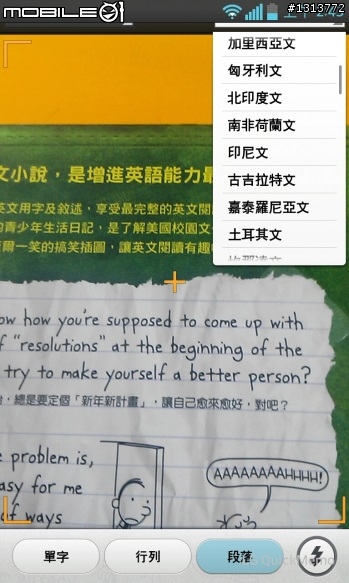 MOBILE01
#1313772
上午 2:45
加里西亞文
匈牙利文
北印度文
南非荷蘭文
印尼文
古吉拉特文
嘉泰羅尼亞文
土耳其文
文小說，是增進英語能力最
英文用字及敘述，享受最完整的英文閱
的青少年生活日記，是了解美國校園文
爾一笑的搞笑插圖，讓英文閱讀有趣
ow how you're supposed to come up with
f "resolutions" at the beginning of the
try to make yourself a better person?
總是要定個「新年新計畫」，讓自己愈來愈好，對吧？
e problem is,
asy for me
of ways
AAAAAAAAHHHH!
單字
行列
段落
QuickMemo